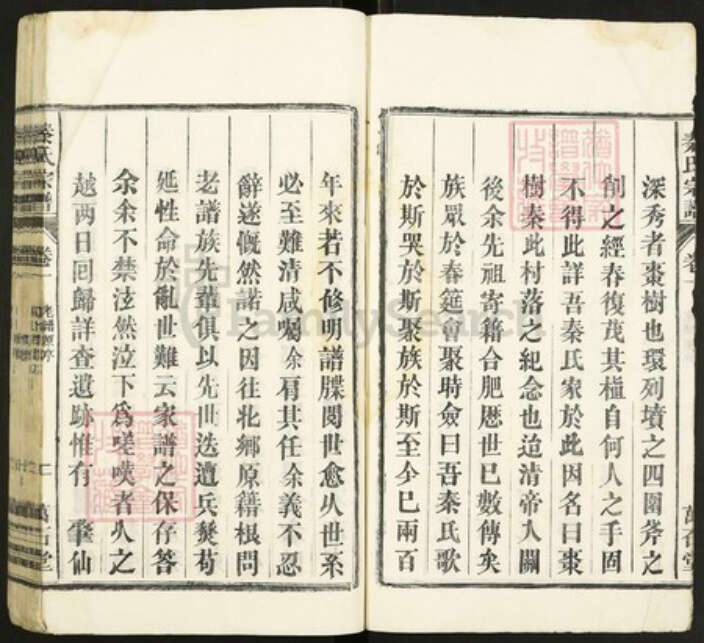 深秀者棗樹也環列墳之四圍斧之
削之經春復茂其植自何人之手固
不得此詳吾秦氏家於此因名曰棗
樹秦此村落之紀念也迨清帝入關
後余先祖寄籍合肥歷世已數傳矣
族眾於春筵會聚時僉曰吾秦氏歌
於斯哭於斯聚族於斯至今已兩百
年來若不修明譜牒閱世愈久世系
必至難清咸囑余肩其任余義不忍
辭遂慨然諾之因往北鄉原籍根問
老譜族先輩俱以先世迭遭兵燹苟
延性命於亂世難云家譜之保存答
余余不禁泫然泣下為嗟嘆者久之
越两日回歸詳查遺跡惟有 肇仙
秦氏宗譜 卷一
萬台堂
FamilySearch